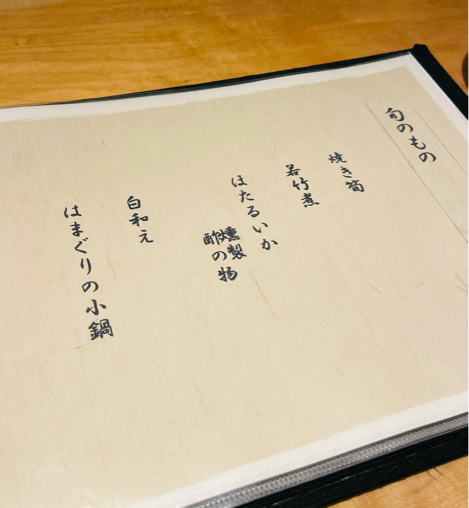 旬のもの
焼き筍
若竹煮
ほたるいか
燻製
酢の物
白和え
はまぐりの小鍋